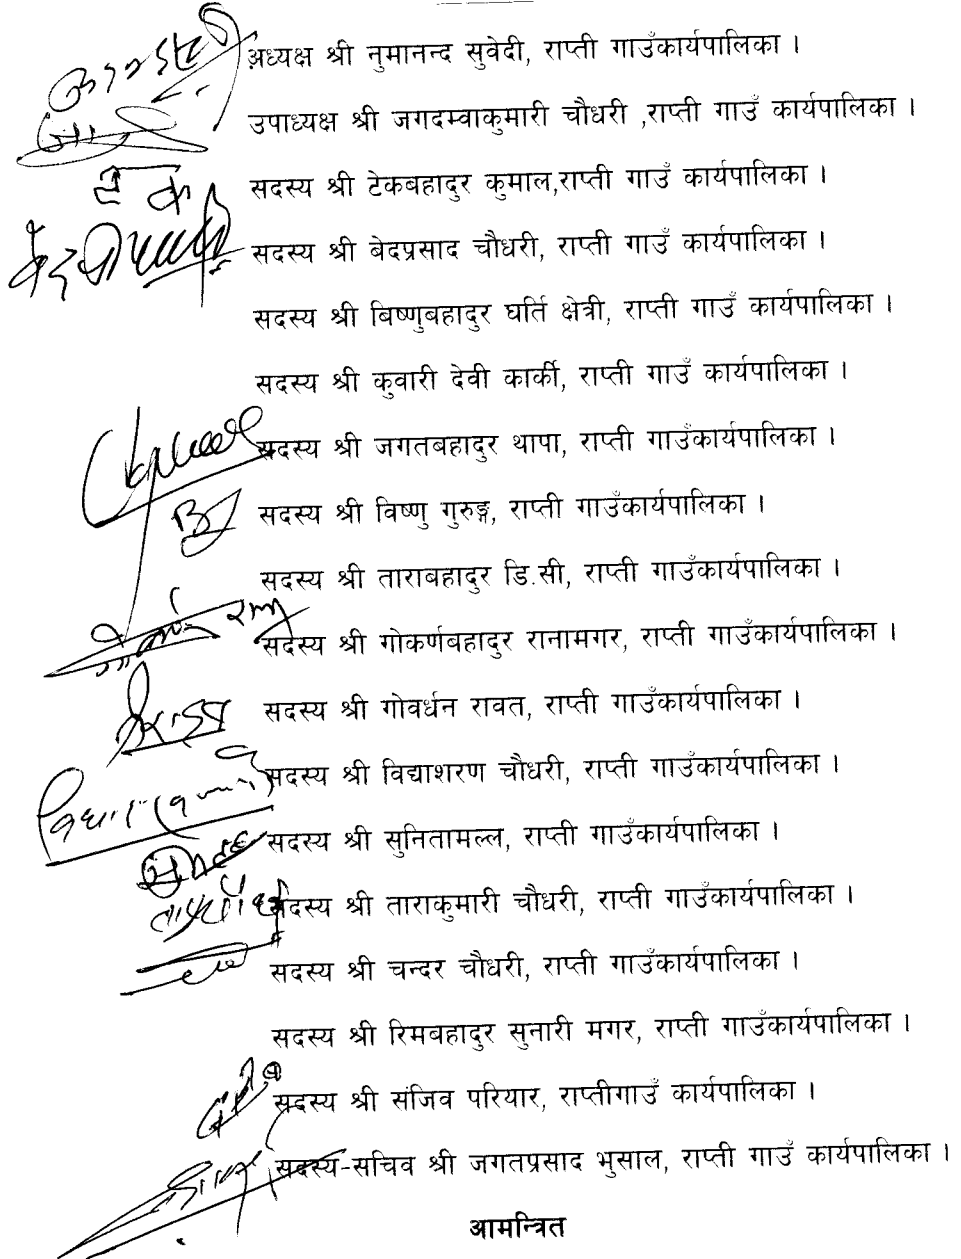 अध्यक्ष श्री नुमानन्द सुवेदी, राप्ती गाउँकार्यपालिका ।
उपाध्यक्ष श्री जगदम्वाकुमारी चौधरी ,राप्ती गाउँ कार्यपालिका ।
सदस्य श्री टेकबहादुर कुमाल,राप्ती गाउँ कार्यपालिका ।
सदस्य श्री बेदप्रसाद चौधरी, राप्ती गाउँ कार्यपालिका ।
सदस्य श्री बिष्णुबहादुर घर्ति क्षेत्री, राप्ती गाउँ कार्यपालिका ।
सदस्य श्री कुवारी देवी कार्की, राप्ती गाउँ कार्यपालिका ।
सदस्य श्री जगतबहादुर थापा, राप्ती गाउँकार्यपालिका ।
सदस्य श्री विष्णु गुरुङ्ग, राप्ती गाउँकार्यपालिका ।
सदस्य श्री ताराबहादुर डि.सी, राप्ती गाउँकार्यपालिका ।
सदस्य श्री गोकर्णबहादुर रानामगर, राप्ती गाउँकार्यपालिका ।
सदस्य श्री गोवर्धन रावत, राप्ती गाउँकार्यपालिका ।
सदस्य श्री विद्याशरण चौधरी, राप्ती गाउँकार्यपालिका ।
सदस्य श्री सुनितामल्ल, राप्ती गाउँकार्यपालिका ।
सदस्य श्री ताराकुमारी चौधरी, राप्ती गाउँकार्यपालिका ।
सदस्य श्री चन्दर चौधरी, राप्ती गाउँकार्यपालिका ।
सदस्य श्री रिमबहादुर सुनारी मगर, राप्ती गाउँकार्यपालिका ।
सदस्य श्री संजिव परियार, राप्तीगाउँ कार्यपालिका ।
सदस्य-सचिव श्री जगतप्रसाद भुसाल, राप्ती गाउँ कार्यपालिका ।
आमन्त्रित